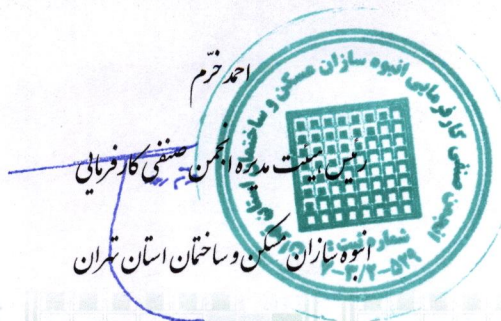 احمد خرّم
رئیس هیئت مدیره انجمن صنفی کارفرمایی
انبوه سازان مسکن و ساختمان استان تهران
انجمن صنفی کارفرمایی انبوه سازان مسکن و ساختمان استان تهران
شماره ثبت